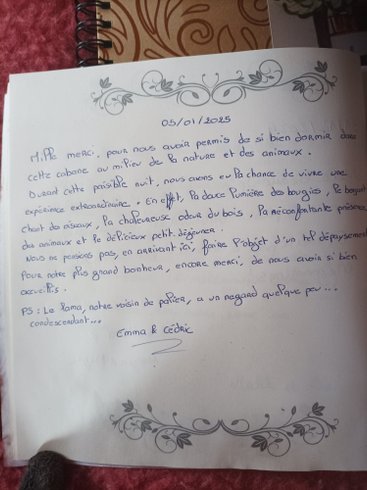 05/01/2025
Mille merci, pour nous avoir permis de si bien dormir dans
cette cabane au milieu de la nature et des animaux.
Durant cette paisible nuit, nous avons eu la chance de vivre une
expérience extraordinaire. En effet, la douce lumière des bougies, le bruyant
chant des oiseaux, la chaleureuse odeur du bois, la réconfortante présence
des animaux et le délicieux petit déjeuner.
Nous ne pensions pas, en arrivant ici, faire l'objet d'un tel dépaysement
Pour notre plus grand bonheur, encore merci, de nous avoir si bien
accueillis.
PS : Le lama, notre voisin de palier, a un regard quelque peu...
condescendant...
Emma & Cédric